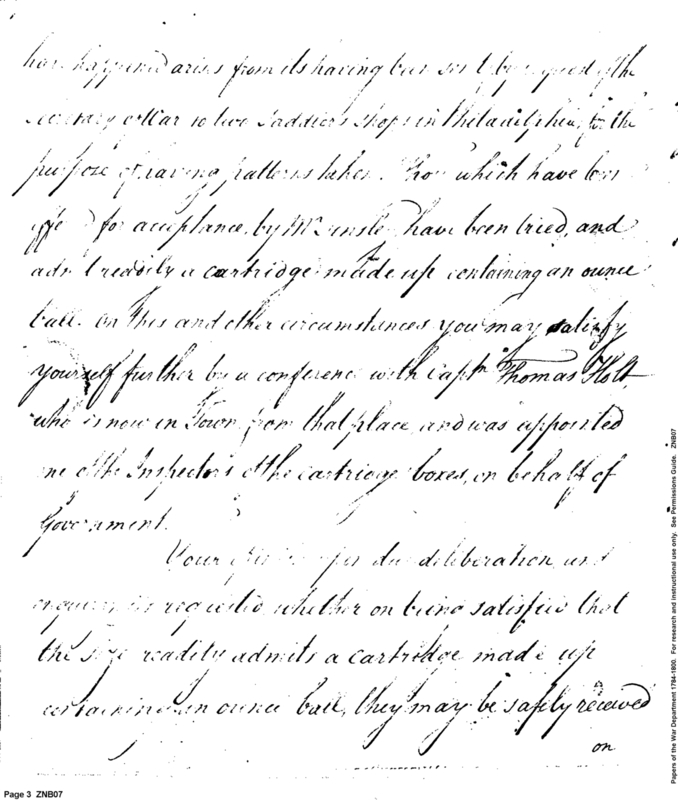 have happened arises from its having been sent by request of the
Secretary of War to two Saddlers shops in Philadelphia, for the
purpose of having patterns taken. Those which have been
offe d for acceptance, by Mr. have been tried, and
admit readily a cartridge made up containing an ounce
ball. On this and other circumstances you may satisfy
yourself further by a conference with Captn. Thomas Holt
who is now in Town from that place, and was appointed
one of the Inspectors of the cartridge boxes, on behalf of
Government.
Your after due deliberation and
enquiry is requested whether on being satisfied that
the size readily admits a cartridge made up
containing an ounce ball, they may be safely received
on
Page 3 ZNB07
Papers of the War Department 1784-1800. For research and instructional use only. See Permissions Guide. ZNB07